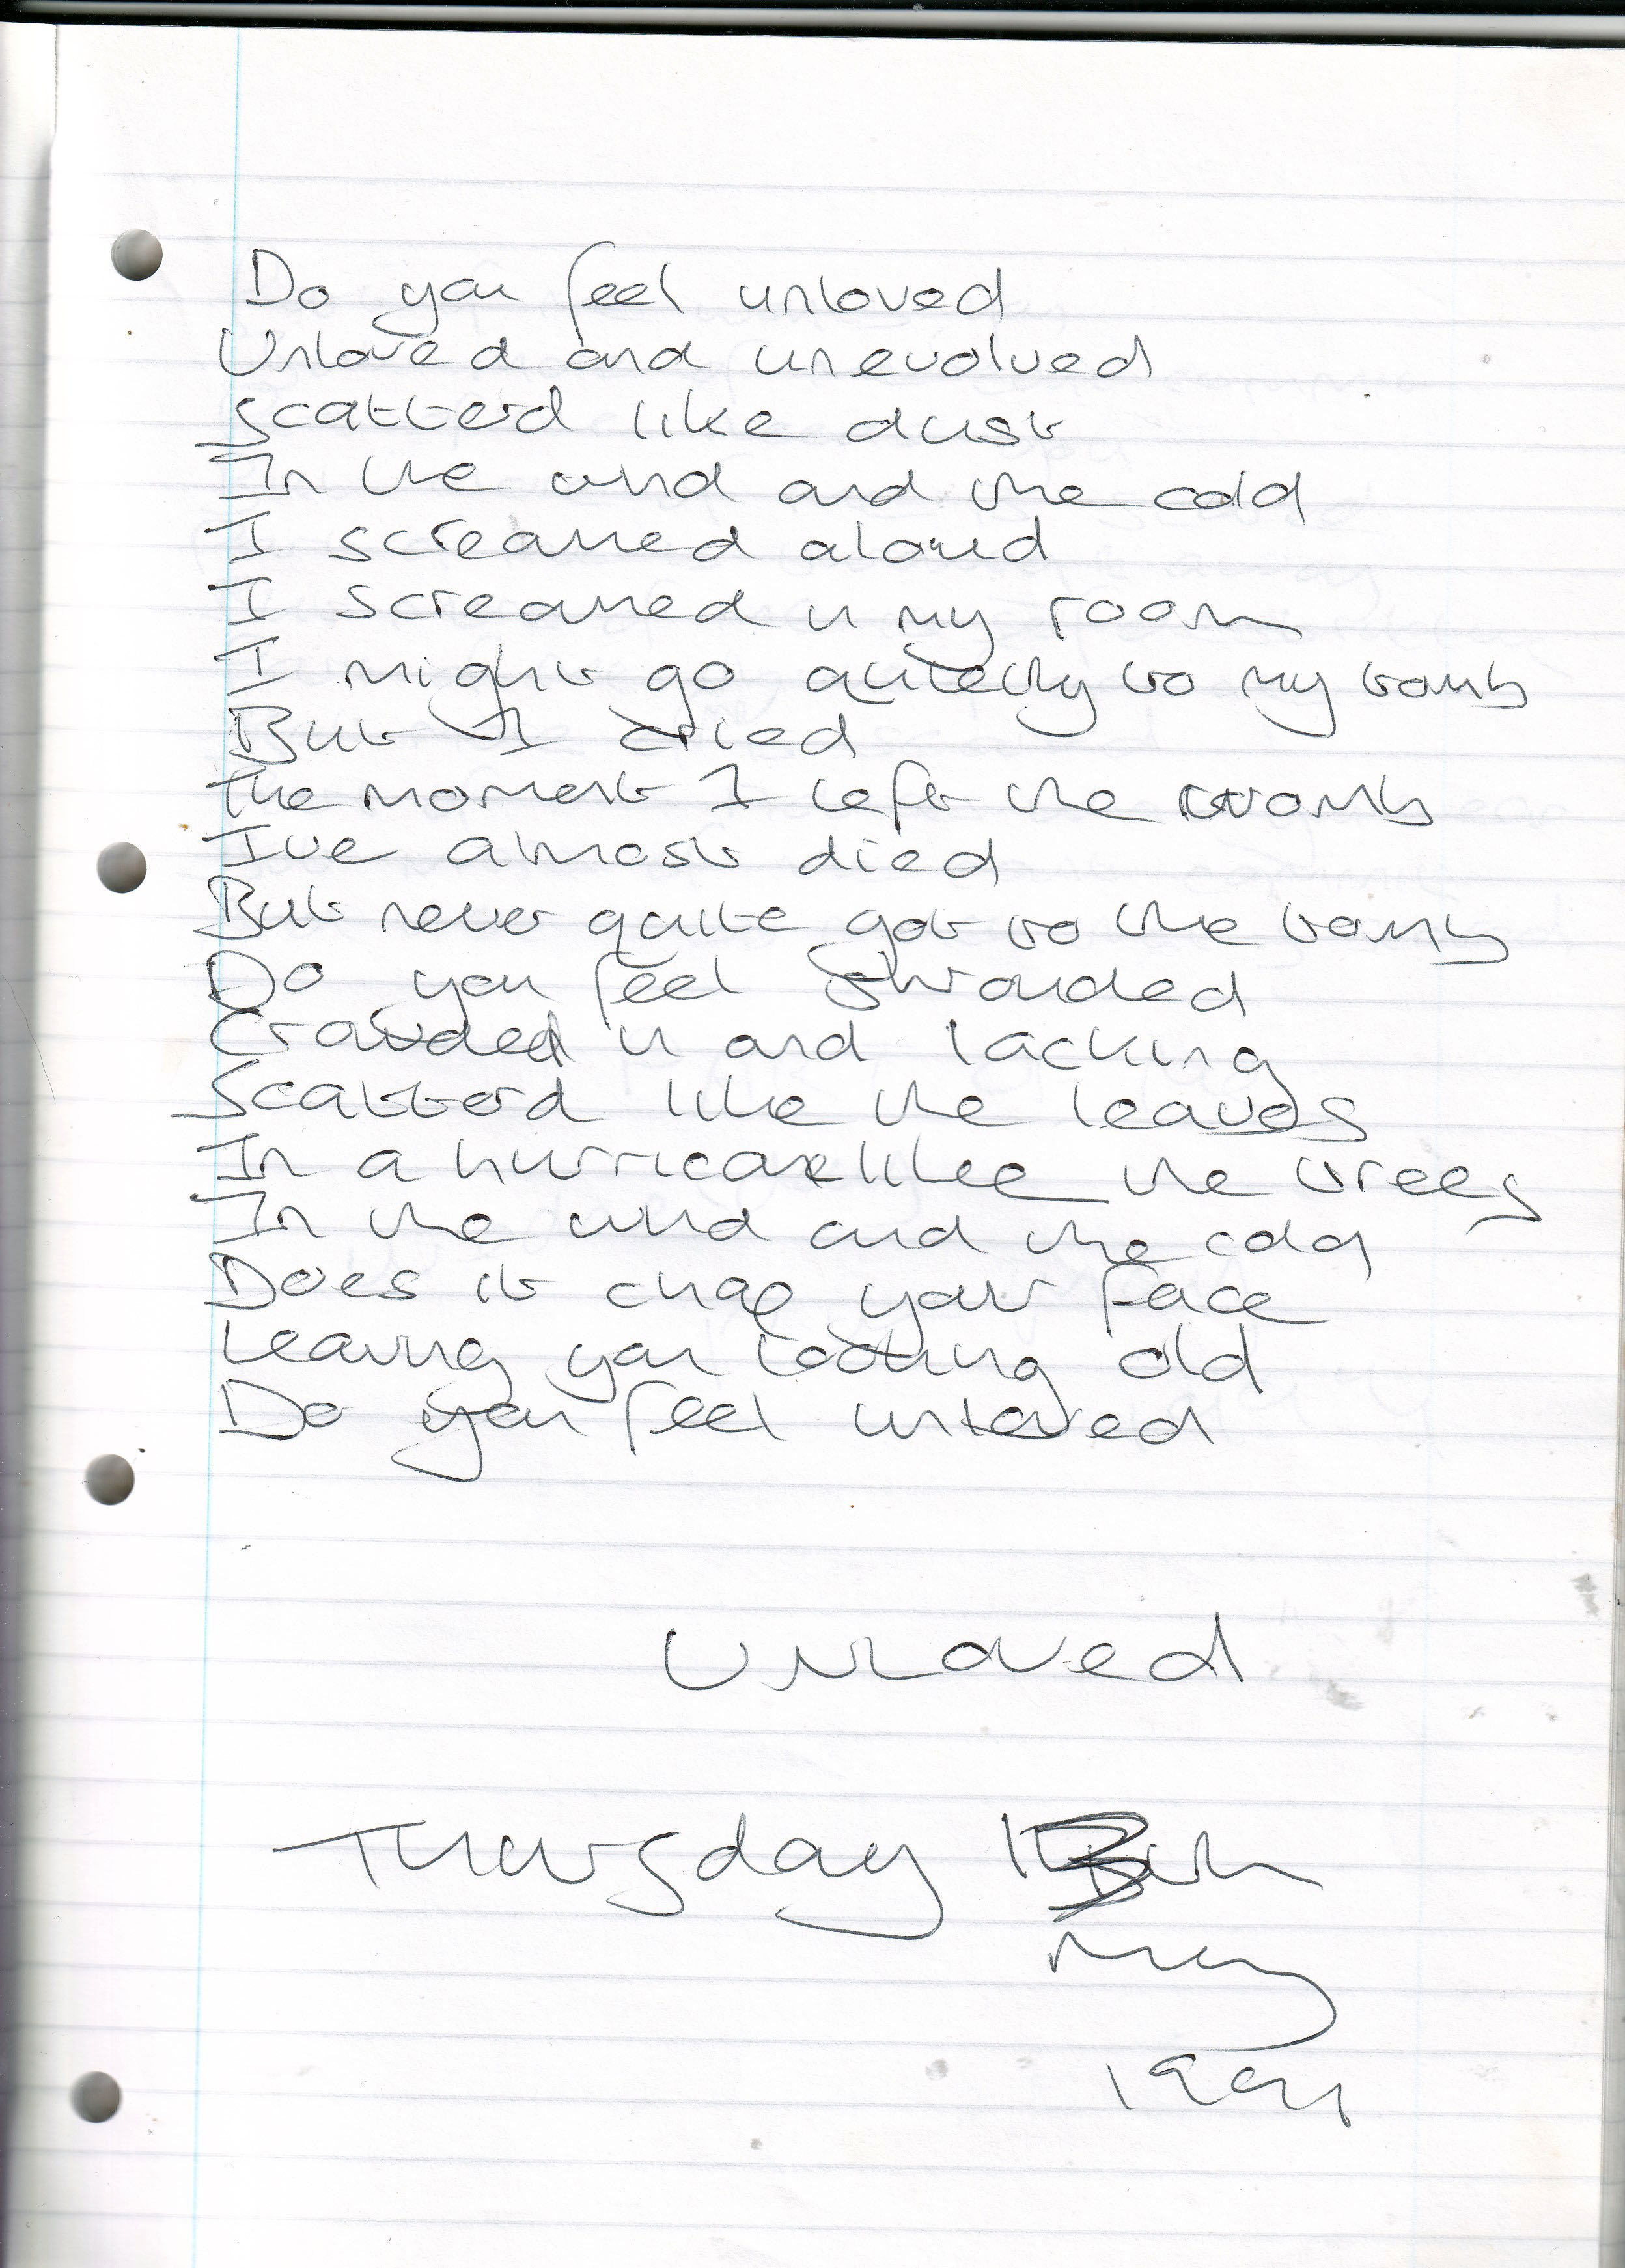 Do you feel unloved
Unloved and unevolved
Scatterd like dust
In the wind and the cold
I screamed aloud
I screamed in my room
I might go quietly to my tomb
But I cried
The moment I left the womb
I've almost died
But never quite got to the tomb
Do you feel shrouded
Crowded in and lacking
Scatterd like the leaves
In a hurricane like the trees
In the wind and the cold
Does it chap your face
Leaving you looking old
Do you feel unloved
Unloved
Thursday
May
1991